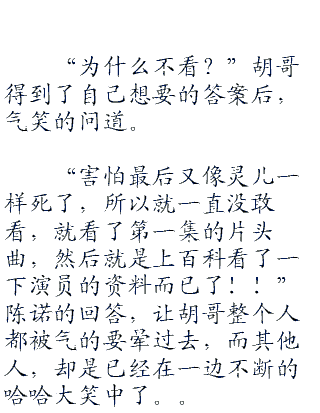 “为什么不看？”胡哥
得到了自己想要的答案后，
气笑的问道。
“害怕最后又像灵儿一
样死了，所以就一直没敢
看，就看了第一集的片头
曲，然后就是上百科看了一
下演员的资料而已了！！”
陈诺的回答，让胡哥整个人
都被气的要晕过去，而其他
人，却是已经在一边不断的
哈哈大笑中了。。